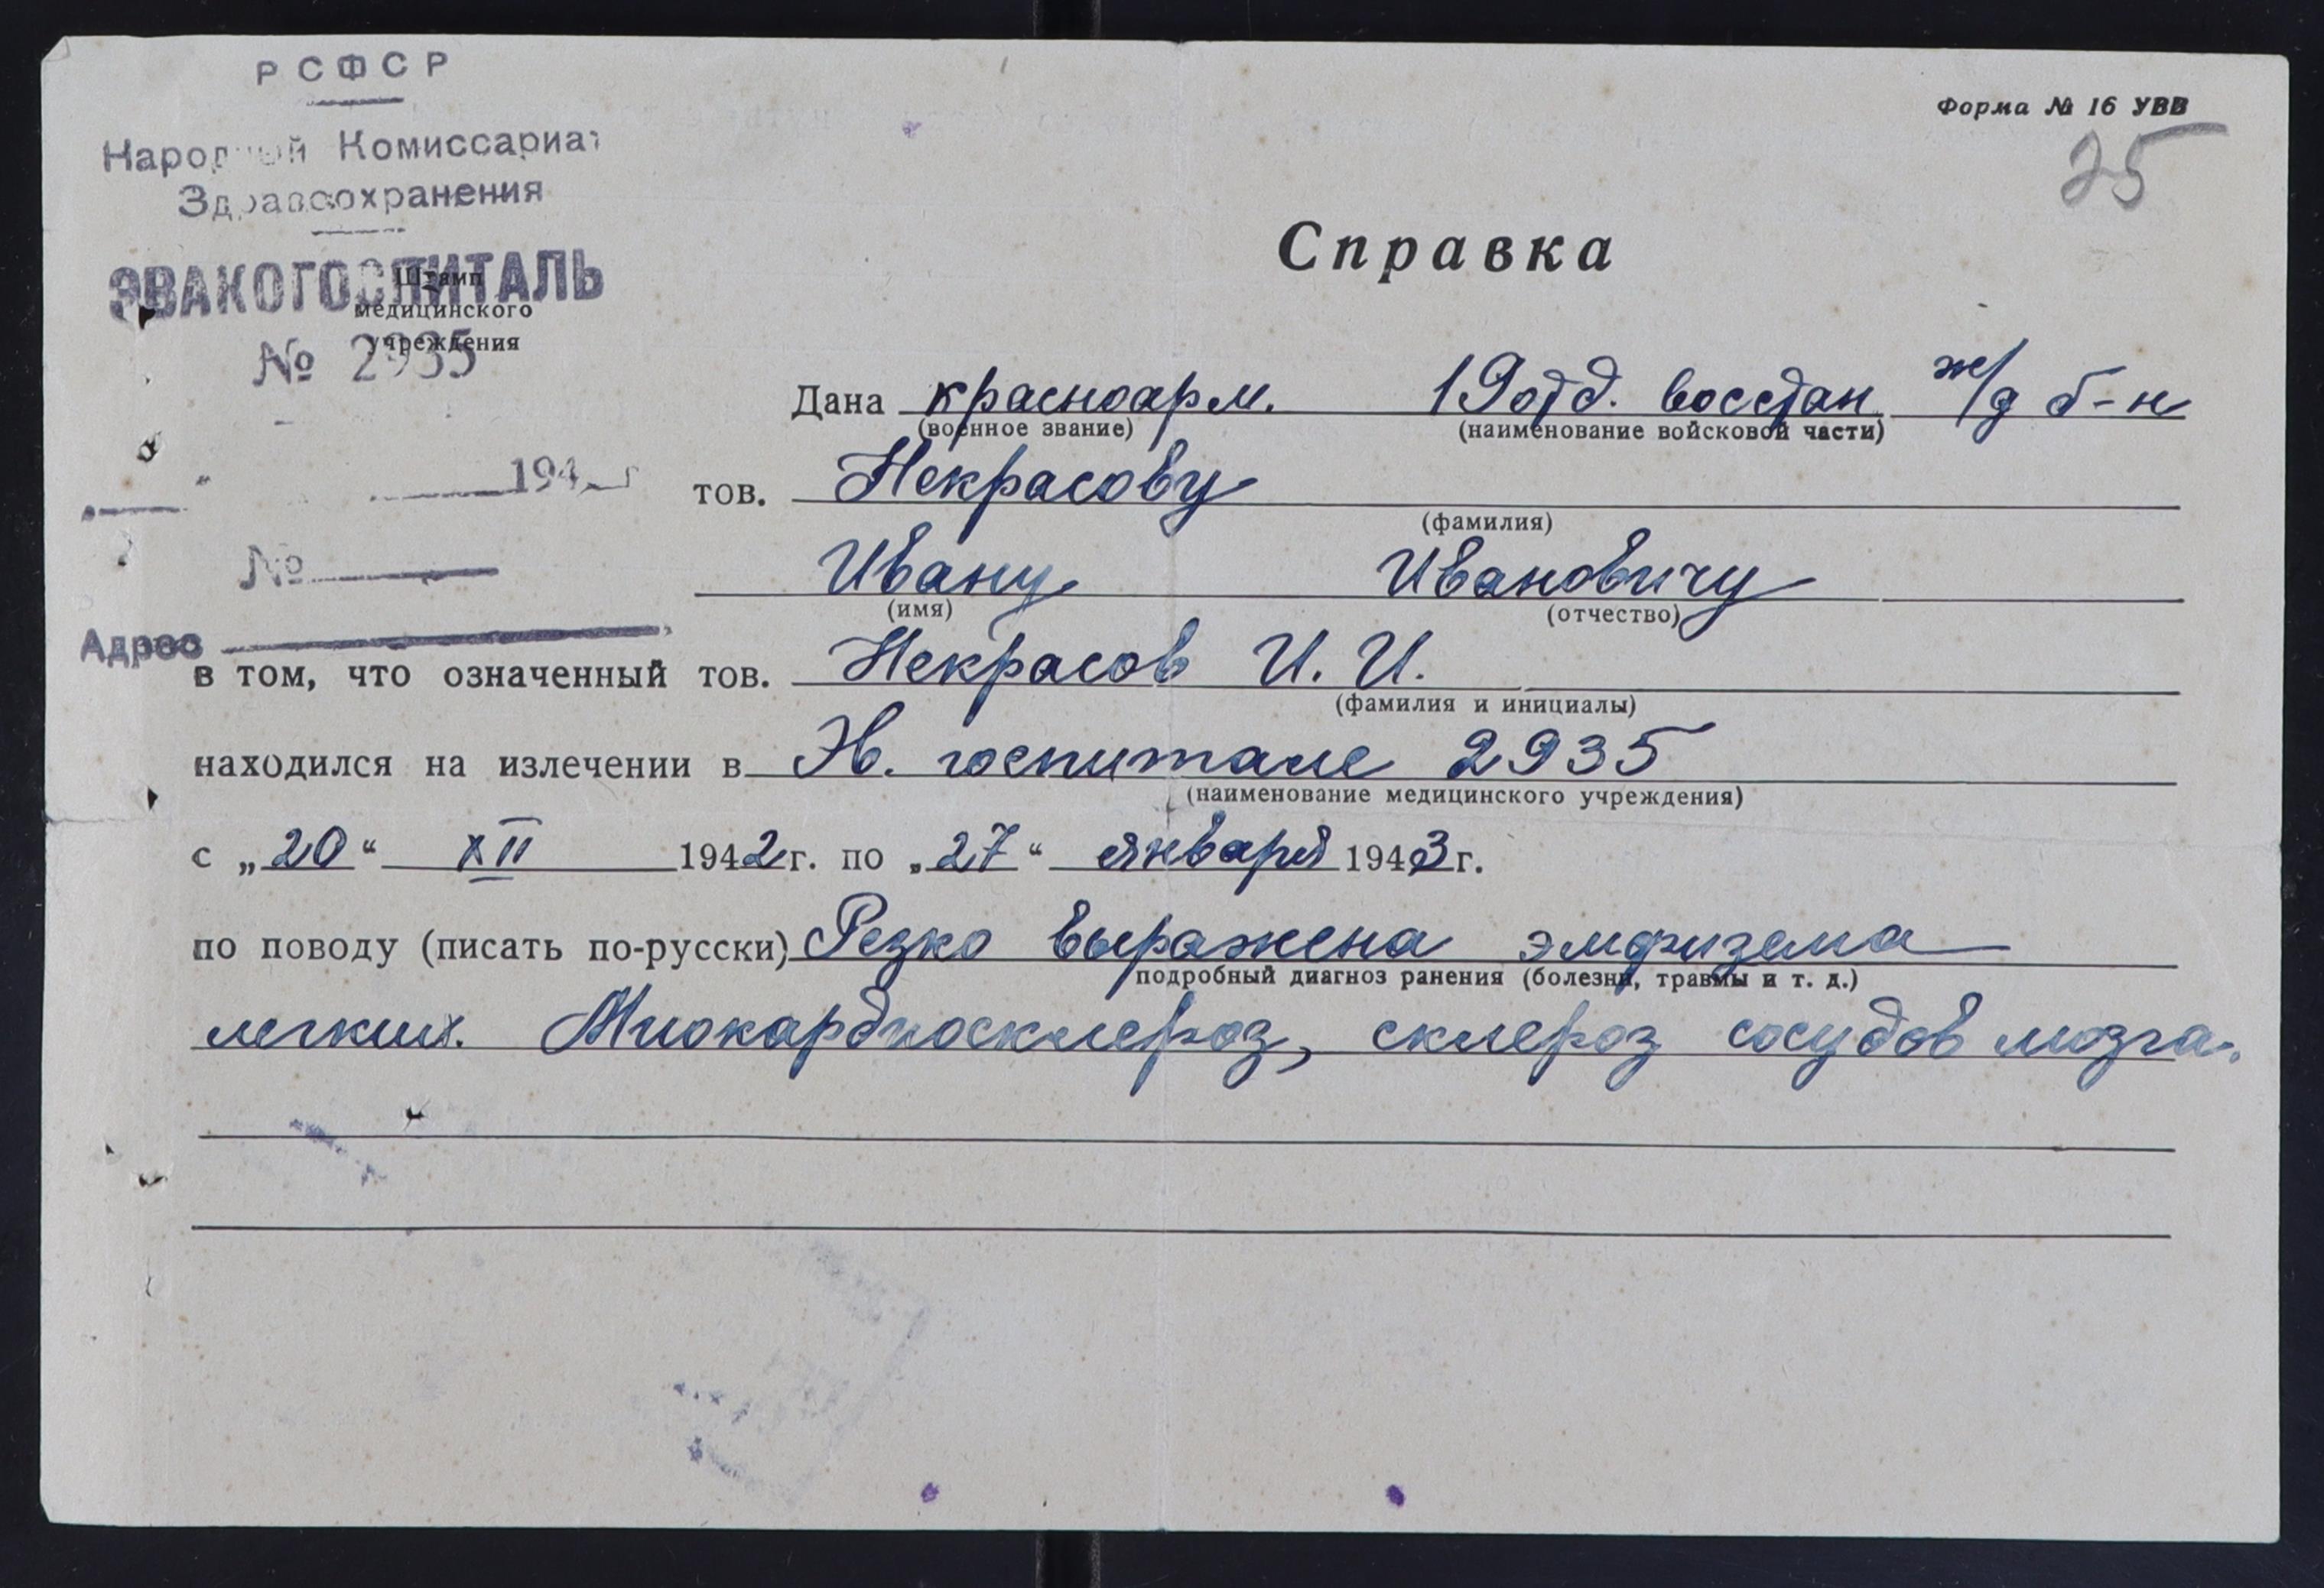 РСФСР
Форма № 16 УВВ
25
Народный Комиссариат
Здравоохранения
ЭВАКОГОСПИТАЛЬ
Штамп
медицинского
учреждения
№ 2935
Справка
Дана красноарм. 19 отд. восстан. ж/д б-н
(военное звание) (наименование войсковой части)
194 г
тов. Некрасову
(фамилия)
№
Ивану Ивановичу
(имя) (отчество)
Адрес
в том, что означенный тов. Некрасов И. И.
(фамилия и инициалы)
находился на излечении в Эв. госпитале 2935
(наименование медицинского учреждения)
с „20“ XII 1942 г. по „27“ января 1943 г.
по поводу (писать по-русски) Резко выражена эмфизема
подробный диагноз ранения (болезни, травмы и т. д.)
легких. Миокардиосклероз, склероз сосудов мозга.